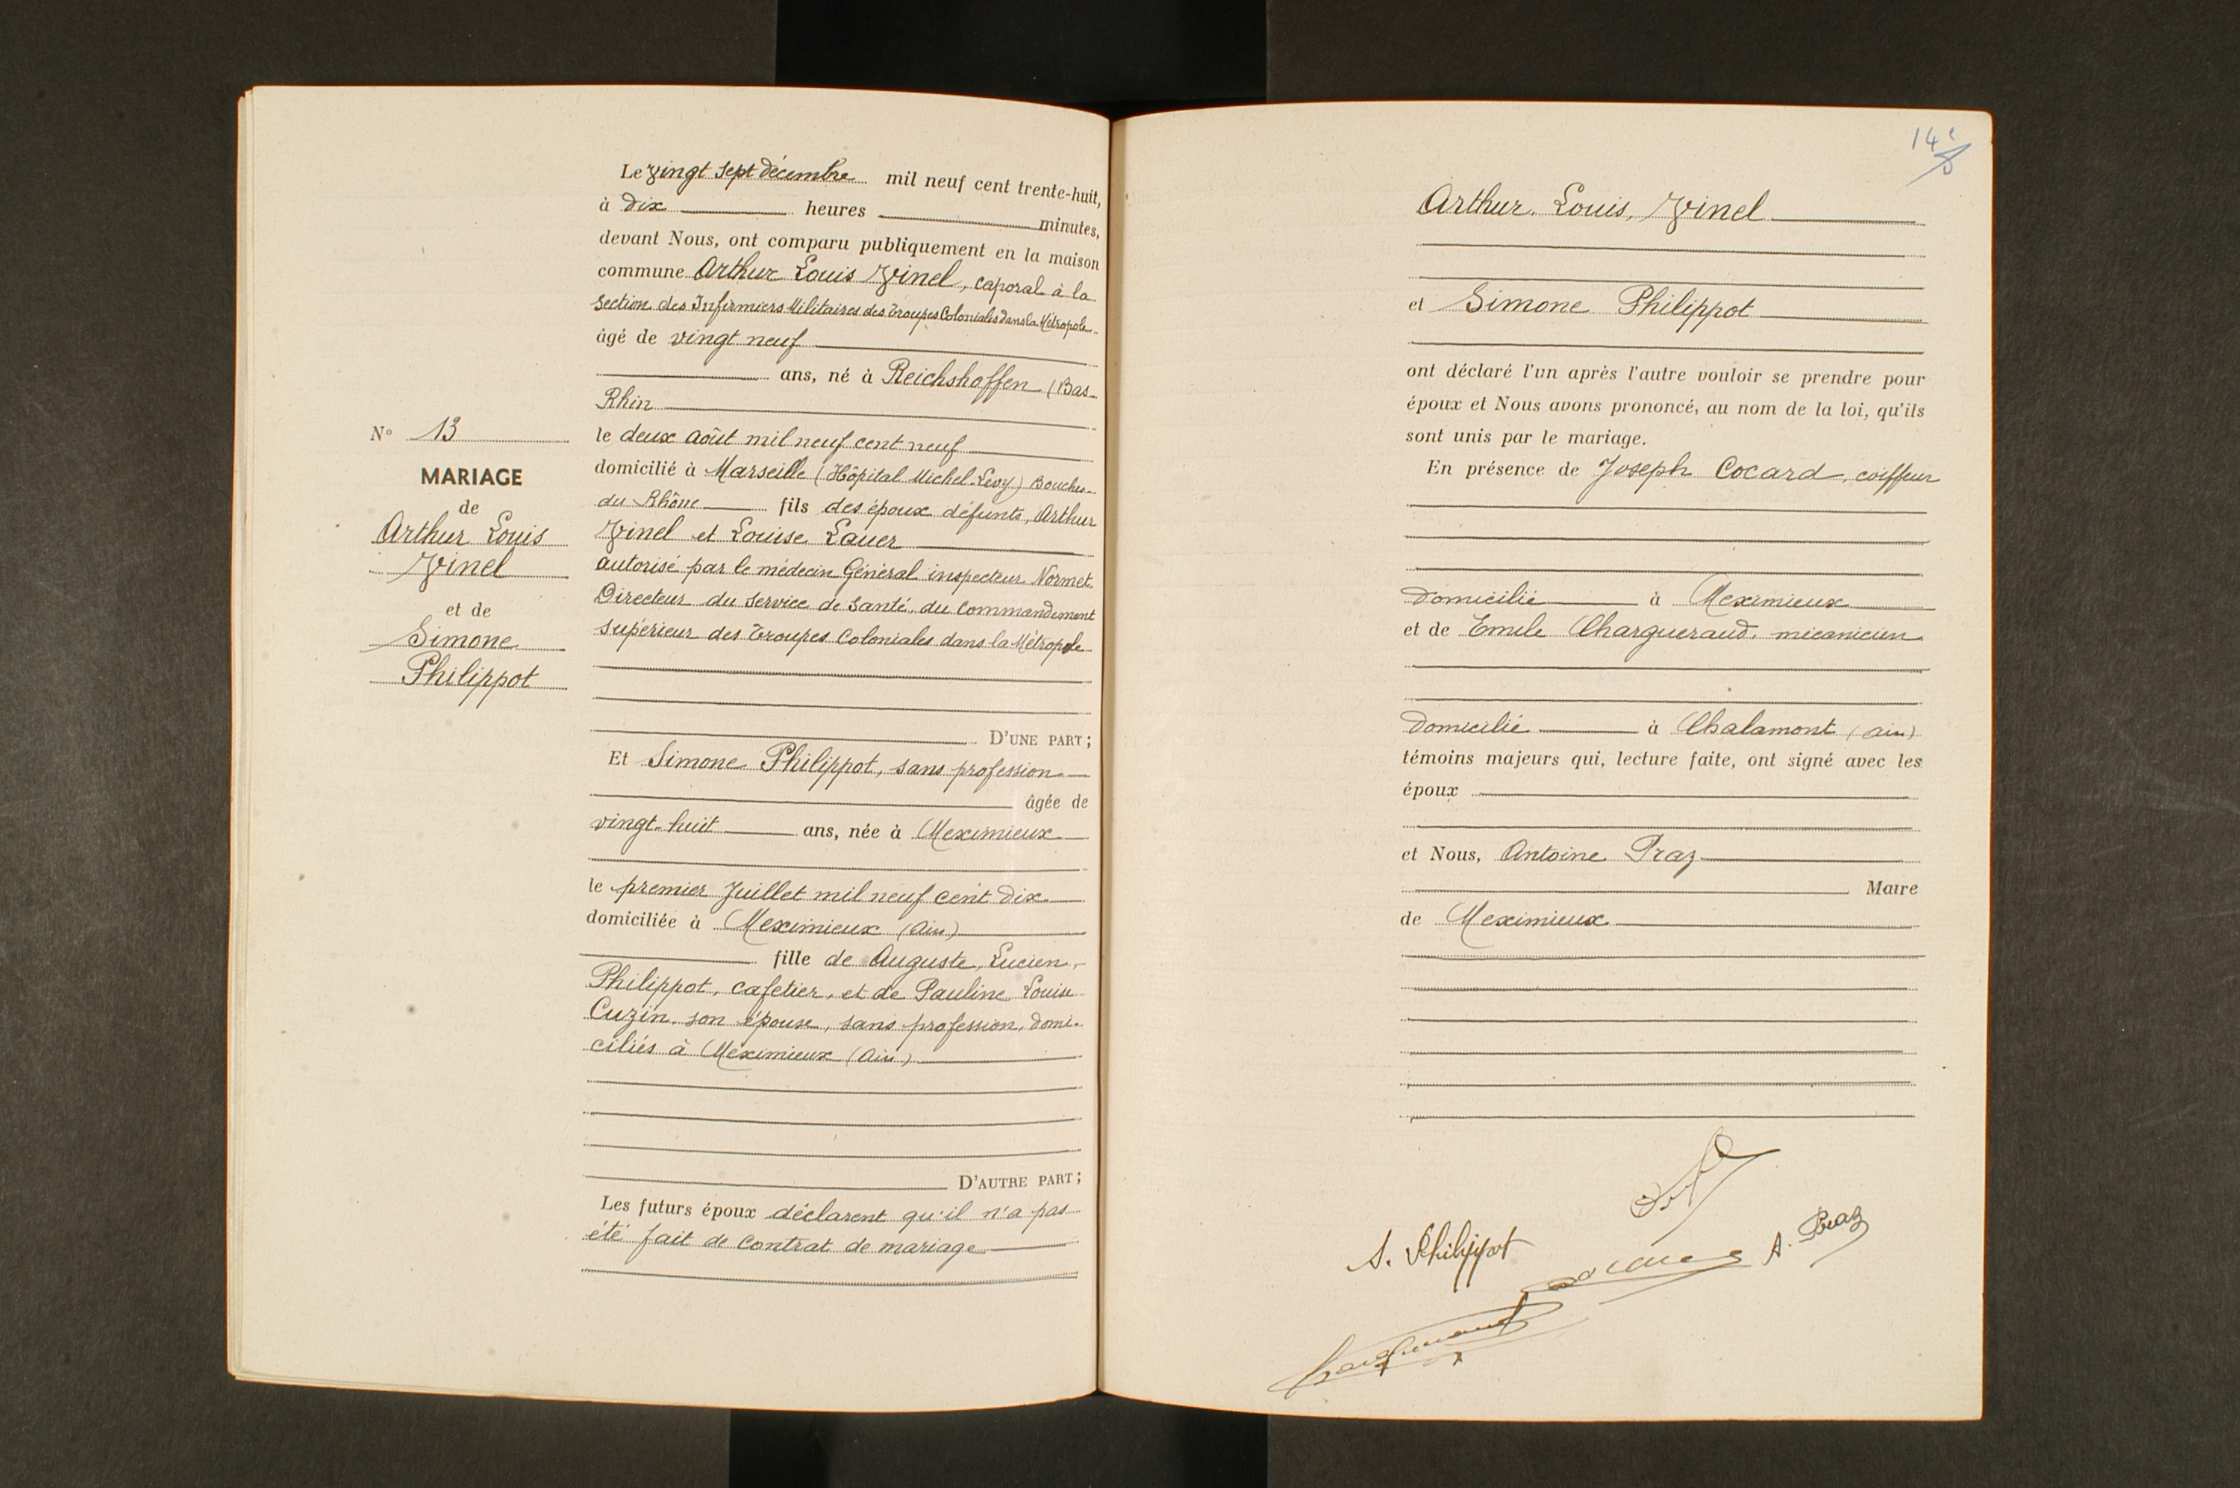 Le vingt sept décembre mil neuf cent trente-huit,
à dix heures minutes,
devant Nous, ont comparu publiquement en la maison
commune Arthur Louis Vinel, caporal à la
Section des Infirmiers Militaires des Troupes Coloniales dans la Métropole
âgé de vingt neuf
ans, né à Reichshoffen (Bas-
Rhin
le deux août mil neuf cent neuf
domicilié à Marseille (Hôpital Michel Levy) Bouches-
du Rhône fils des époux défunts, Arthur
Vinel et Louise Lauer
autorisé par le médecin Général inspecteur Normet
Directeur du Service de Santé du Commandement
supérieur des Troupes Coloniales dans la Métropole
D'UNE PART;
Et Simone Philippot, sans profession
âgée de
vingt-huit ans, née à Meximieux
le premier Juillet mil neuf cent dix
domiciliée à Meximieux (Ain)
fille de Auguste, Lucien,
Philippot, cafetier, et de Pauline Louise
Cuzin, son épouse, sans profession, domi-
ciliés à Meximieux (Ain)
D'AUTRE PART;
Les futurs époux déclarent qu'il n'a pas
été fait de contrat de mariage
N° 13
MARIAGE
de
Arthur Louis
Vinel
et de
Simone
Philippot
14
Arthur, Louis, Vinel
et Simone Philippot
ont déclaré l'un après l'autre vouloir se prendre pour
époux et Nous avons prononcé, au nom de la loi, qu'ils
sont unis par le mariage.
En présence de Joseph Cocard, coiffeur
domicilié à Meximieux
et de Emile Chargueraud, mécanicien
domicilié à Chalamont (Ain)
témoins majeurs qui, lecture faite, ont signé avec les
époux
et Nous, Antoine Praz
Maire
de Meximieux
S. Philippot
A. Praz